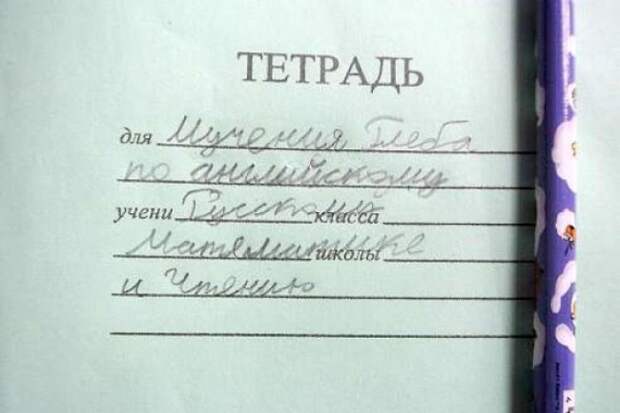 ТЕТРАДЬ
для Мучения Глеба
по английскому
учени Русскому класса
Математике школы
и Чтению